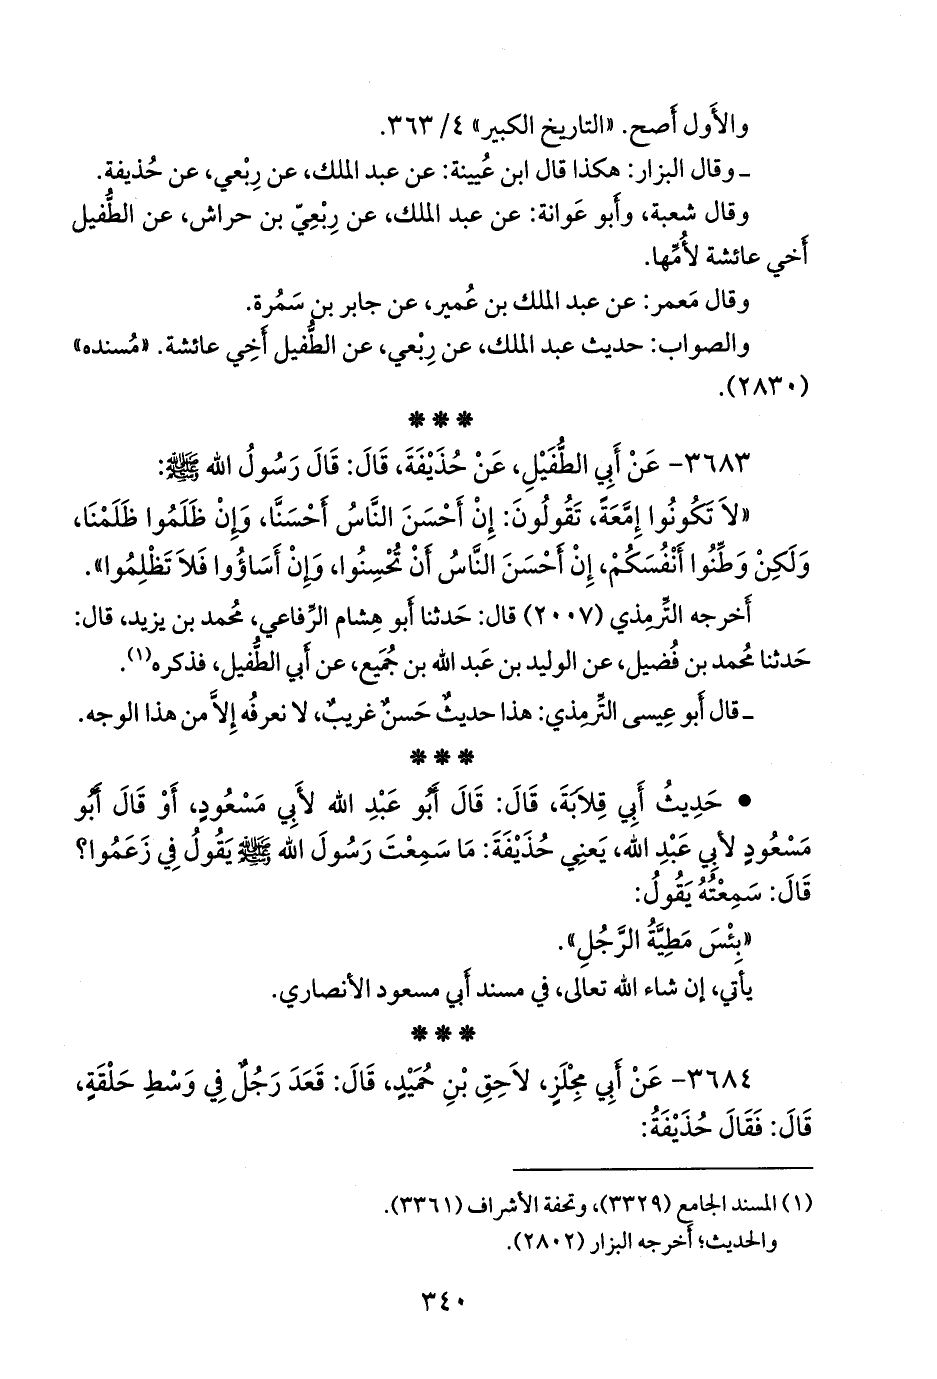 والأَول أَصح. «التاريخ الكبير» ٤/ ٣٦٣.
ـ وقال البزار: هكذا قال ابن عُيينة: عن عبد الملك، عن رِبْعي، عن حُذيفة.
وقال شعبة، وأَبو عَوانة: عن عبد الملك، عن رِبْعِيّ بن حراش، عن الطُّفيل
أَخي عائشة لأُمِّها.
وقال مَعمر: عن عبد الملك بن عُمير، عن جابر بن سَمُرة.
والصواب: حديث عبد الملك، عن رِبْعي، عن الطُّفيل أَخِي عائشة. «مُسنده»
(٢٨٣٠).
* * *
٣٦٨٣- عَنْ أَبِي الطُّفَيْلِ، عَنْ حُذَيْفَةَ، قَالَ: قَالَ رَسُولُ الله ﷺ:
«لاَ تَكُونُوا إِمَّعَةً، تَقُولُونَ: إِنْ أَحْسَنَ النَّاسُ أَحْسَنَّا، وَإِنْ ظَلَمُوا ظَلَمْنَا،
وَلَكِنْ وَطِّنُوا أَنْفُسَكُمْ، إِنْ أَحْسَنَ النَّاسُ أَنْ تُحْسِنُوا، وَإِنْ أَسَاؤُوا فَلاَ تَظْلِمُوا».
أَخرجه التِّرمِذي (٢٠٠٧) قال: حَدثنا أَبو هِشام الرِّفاعي، مُحمد بن يزيد، قال:
حَدثنا مُحمد بن فُضيل، عن الوليد بن عَبد الله بن جُمَيع، عن أَبي الطُّفيل، فذكره(١).
ـ قال أَبو عِيسى التِّرمِذي: هذا حديثٌ حَسنٌ غريبٌ، لا نعرفُه إِلاَّ من هذا الوجه.
* * *
• حَدِيثُ أَبِي قِلاَبَةَ، قَالَ: قَالَ أَبُو عَبْدِ الله لأَبِي مَسْعُودٍ، أَوْ قَالَ أَبُو
مَسْعُودٍ لأَبِي عَبْدِ الله، يَعنِي حُذَيْفَةَ: مَا سَمِعْتَ رَسُولَ الله ﷺ يَقُولُ فِي زَعَمُوا؟
قَالَ: سَمِعْتُهُ يَقُولُ:
«بِئْسَ مَطِيَّةُ الرَّجُلِ».
يأتي، إن شاء الله تعالى، في مسند أَبي مسعود الأنصاري.
* * *
٣٦٨٤- عَنْ أَبِي مِجْلَزٍ، لاَحِقِ بْنِ حُمَيْدٍ، قَالَ: قَعَدَ رَجُلٌ فِي وَسْطِ حَلْقَةٍ،
قَالَ: فَقَالَ حُذَيْفَةُ:
(١) المسند الجامع (٣٣٢٩)، وتحفة الأشراف (٣٣٦١).
والحديث؛ أَخرجه البزار (٢٨٠٢).
٣٤٠